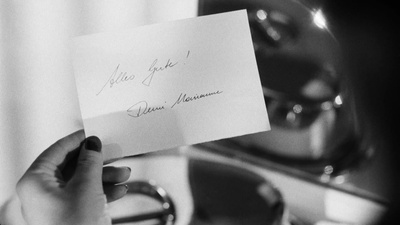 Alles Gute!
Deine Marianne